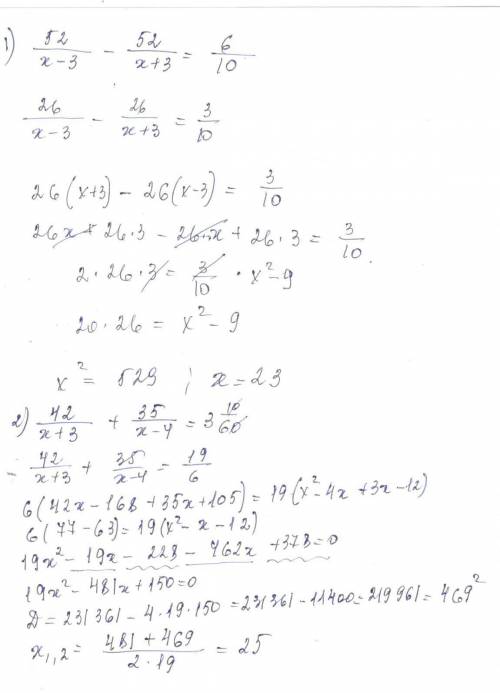 1) 52/(x-3) - 52/(x+3) = 6/10
26/(x-3) - 26/(x+3) = 3/10
26(x+3) - 26(x-3) = 3/10
26x + 26·3 - 26·x + 26·3 = 3/10.
2·26·3 = 3/10 · x²-9
20·26 = x² - 9
x² = 529 ; x = 23
2) 42/(x+3) + 35/(x-4) = 3 10/60
- 42/(x+3) + 35/(x-4) = 19/6
6(42x - 168 + 35x + 105) = 19(x² - 4x + 3x - 12)
6(77 - 63) = 19(x² - x - 12)
19x² - 19x - 228 - 462x + 378 = 0
19x² - 481x + 150 = 0
D = 231361 - 4·19·150 = 231361 - 11400 = 219961 = 469²
x₁,₂ = (481 + 469)/(2·19) = 25